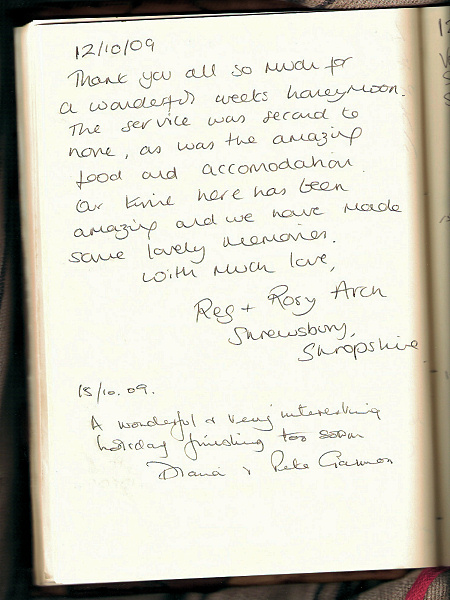 12/10/09
Thank you all so much for
a wonderful weeks honeymoon.
The service was second to
none, as was the amazing
food and accomodation.
Our time here has been
amazing and we have made
some lovely memories.
With much love,
Reg + Rosy Arch
Shrewsbury,
Shropshire
15/10.09.
A wonderful & very interesting
holiday finishing too soon
Diana & Pete